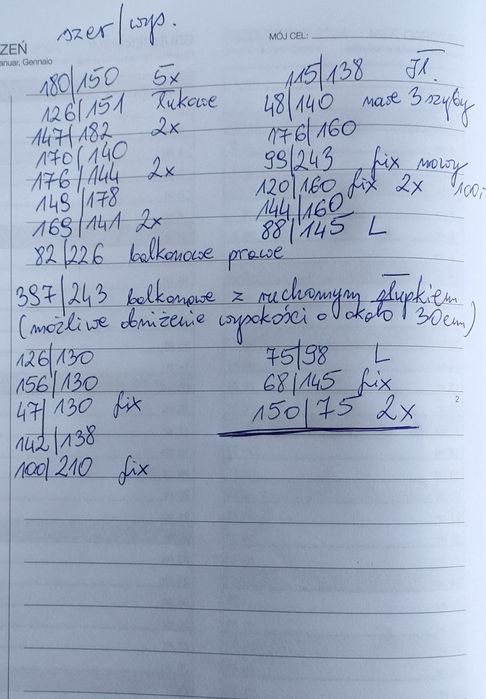 szer/wys.
ZEŃ
MÓJ CEL:
anuar, Gennaio
180/150 5x
126/151 łukowe
147/182 2x
170/140
176/144 2x
149/178
169/141 2x
82/226 balkonowe prawe
115/138
48/140 nowe 3 szyby
176/160
99/243 fix nowy
120/160 fix 2x
144/160
88/145 L
397/243 balkonowe z ruchomym słupkiem
(możliwe obniżenie wysokości o około 30cm)
126/130
156/130
47/130 fix
142/138
100/210 fix
75/98 L
68/145 fix
150/75 2x